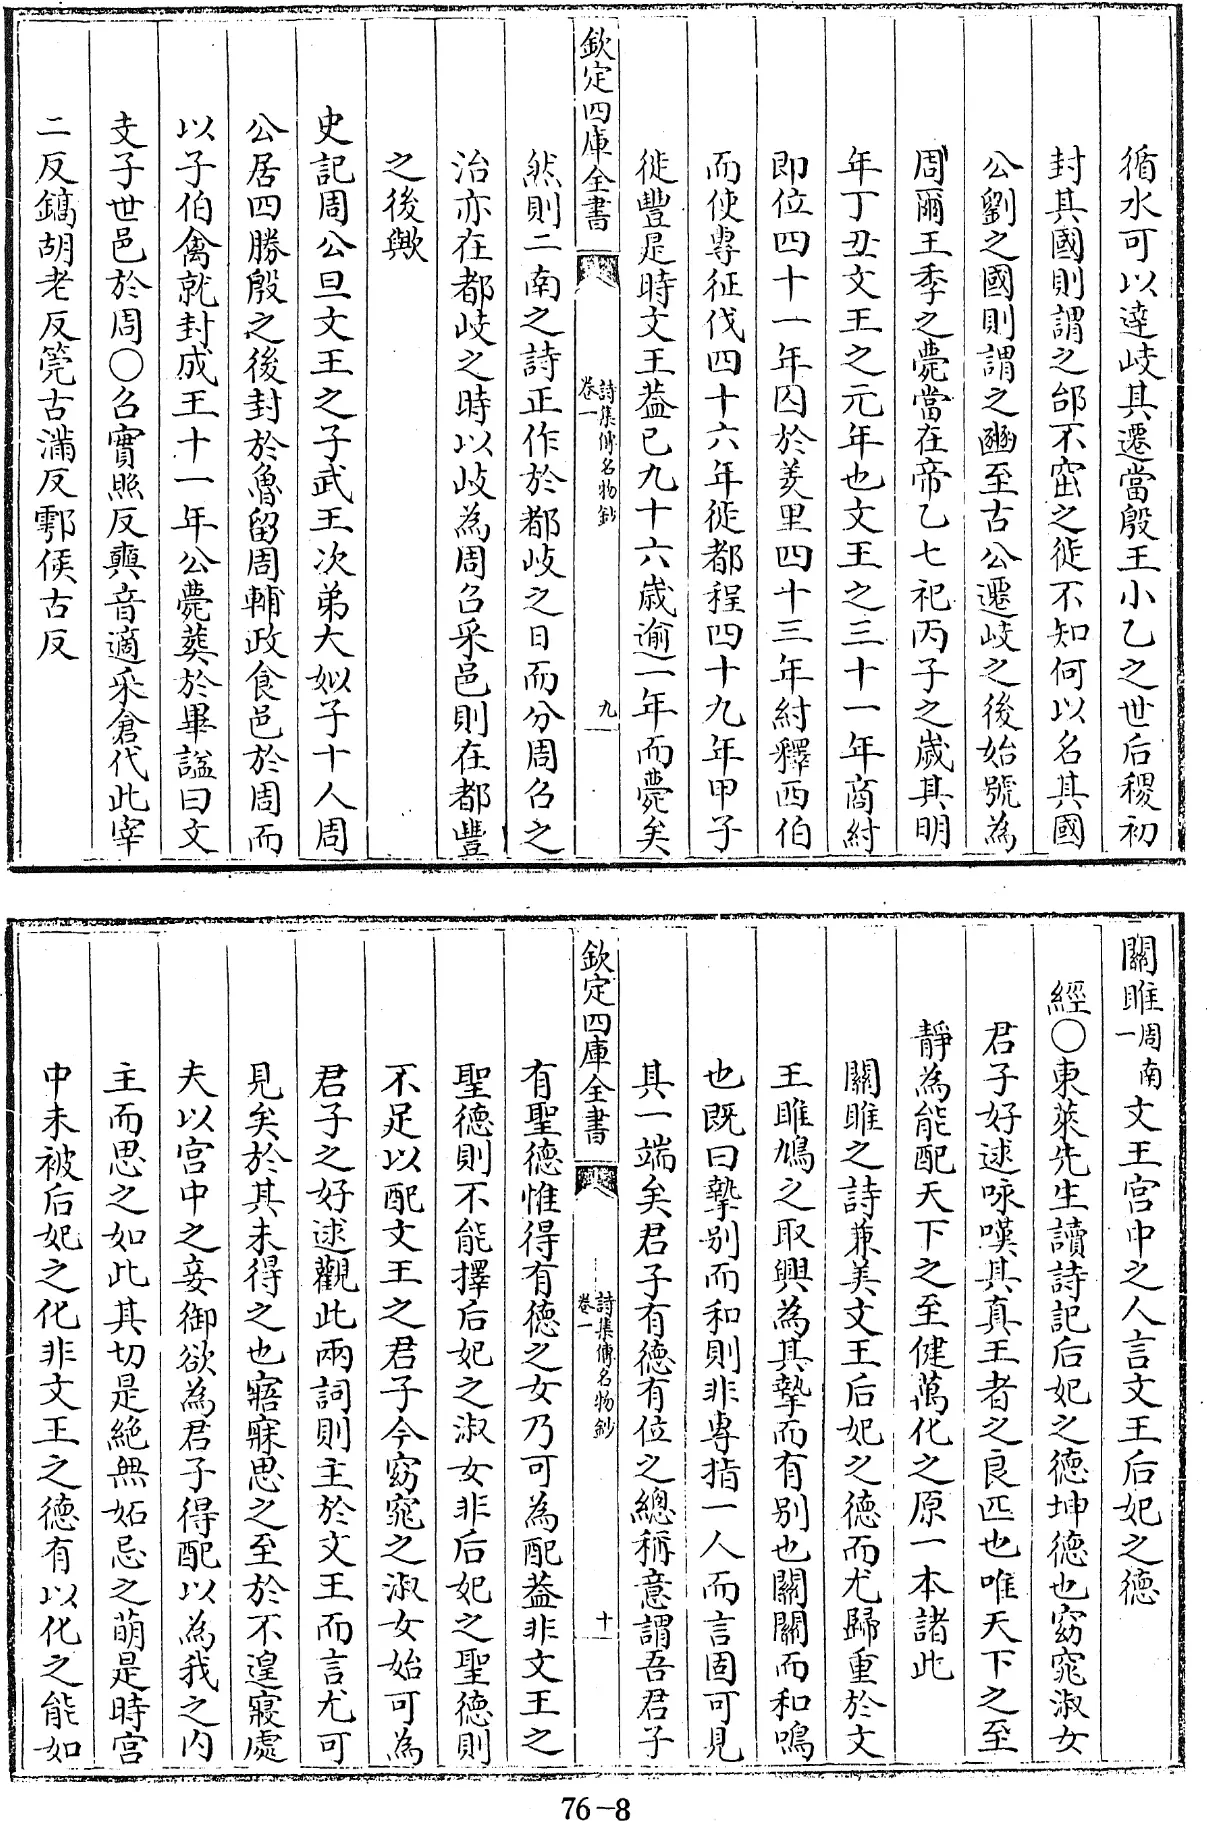 循水可以達岐其遷當殷王小乙之世后稷初
封其國則謂之邰不窋之徙不知何以名其國
公劉之國則謂之豳至古公遷岐之後始號為
周爾王季之薨當在帝乙七祀丙子之歲其明
年丁丑文王之元年也文王之三十一年商紂
即位四十一年囚於羑里四十三年紂釋西伯
而使專征伐四十六年徙都程四十九年甲子
徙豐是時文王葢已九十六歲逾一年而薨矣
欽定四庫全書
詩集傳名物鈔
卷一
九
然則二南之詩正作於都岐之日而分周召之
治亦在都岐之時以岐為周召采邑則在都豐
之後歟
史記周公旦文王之子武王次弟大姒子十人周
公居四勝殷之後封於魯留周輔政食邑於周而
以子伯禽就封成王十一年公薨葬於畢諡曰文
支子世邑於周○召實照反奭音適采倉代此宰
二反鎬胡老反筦古滿反鄠侯古反
關雎周南一文王宫中之人言文王后妃之德
經○東萊先生讀詩記后妃之德坤德也窈窕淑女
君子好逑咏嘆其真王者之良匹也唯天下之至
靜為能配天下之至健萬化之原一本諸此
關雎之詩兼美文王后妃之德而尤歸重於文
王雎鳩之取興為其摯而有别也關關而和鳴
也既曰摯别而和則非專指一人而言固可見
其一端矣君子有德有位之總稱意謂吾君子
欽定四庫全書
詩集傳名物鈔
卷一
十
有聖德惟得有德之女乃可為配葢非文王之
聖德則不能擇后妃之淑女非后妃之聖德則
不足以配文王之君子今窈窕之淑女始可為
君子之好逑觀此兩詞則主於文王而言尤可
見矣於其未得之也寤寐思之至於不遑寢處
夫以宫中之妾御欲為君子得配以為我之内
主而思之如此其切是絶無妬忌之萌是時宫
中未被后妃之化非文王之德有以化之能如
76-8